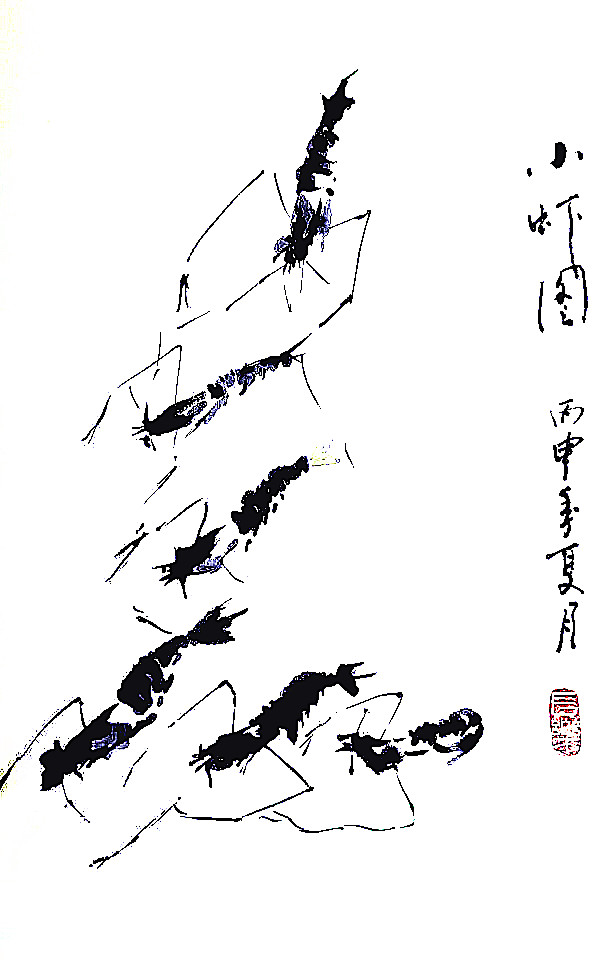 小虾图
丙申年夏月